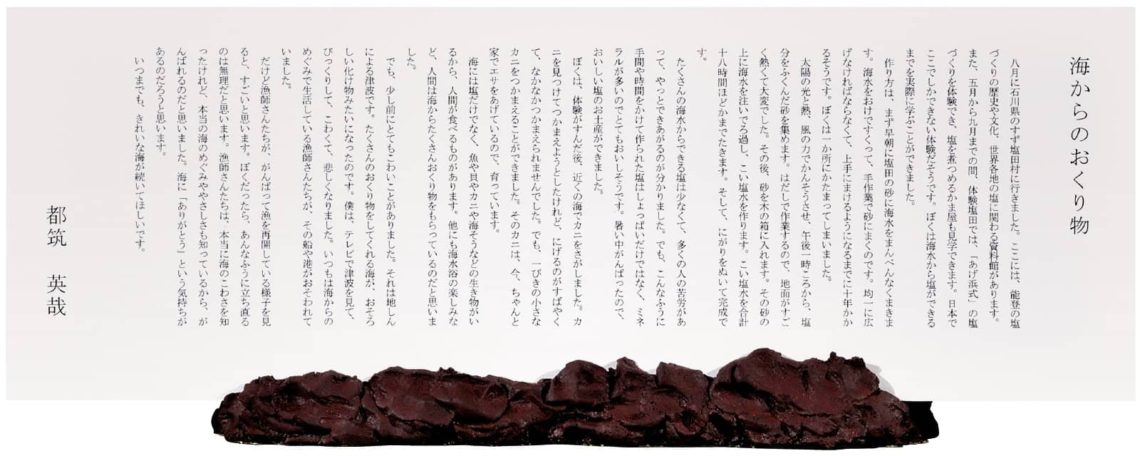 海からのおくり物
八月に石川県のすず塩田村に行きました。ここには、能登の塩
づくりの歴史や文化、世界各地の塩に関わる資料館があります。
また、五月から九月までの間、体験塩田では、「あげ浜式」の塩
づくりを体験でき、塩を煮つめるかま屋も見学できます。日本で
ここでしかできない体験だそうです。ぼくは海水から塩ができる
までを実際に学ぶことができました。
作り方は、まず早朝に塩田の砂に海水をまんべんなくまきま
す。海水をおけですくって、手作業で砂にまくのです。均一に広
げなければならなくて、上手にまけるようになるまでに十年かか
るそうです。ぼくは一か所にかたまってしまいました。
太陽の光と熱、風の力でかんそうさせ、午後一時ころから、塩
分をふくんだ砂を集めます。はだしで作業するので、地面がすご
く熱くて大変でした。その後、砂を木の箱に入れます。その砂の
上に海水を注いでろ過し、こい塩水を作ります。こい塩水を合計
十八時間ほどかまでたきます。そして、にがりをぬいて完成で
す。
たくさんの海水からできる塩は少なくて、多くの人の苦労があ
って、やっとできあがるのが分かりました。でも、こんなふうに
手間や時間をかけて作られた塩はしょっぱいだけではなく、ミネ
ラルが多いのでとてもおいしそうです。暑い中がんばったので、
おいしい塩のお土産ができました。
ぼくは、体験がすんだ後、近くの海でカニをさがしました。カ
ニを見つけてつかまえようとしたけれど、にげるのがすばやく
て、なかなかつかまえられませんでした。でも、一ぴきの小さな
カニをつかまえることができました。そのカニは、今、ちゃんと
家でエサをあげているので、育っています。
海には塩だけでなく、魚や貝やカニや海そうなどの生き物がい
るから、人間が食べるものがあります。他にも海水浴の楽しみな
ど、人間は海からたくさんおくり物をもらっているのだと思いま
した。
でも、少し前にとてもこわいことがありました。それは地しん
による津波です。たくさんのおくり物をしてくれる海が、おそろ
しい化け物みたいになったのです。僕は、テレビで津波を見て、
びっくりして、こわくて、悲しくなりました。いつもは海からの
めぐみで生活している漁師さんたちが、その船や港がおそわれて
いました。
だけど漁師さんたちが、がんばって漁を再開している様子を見
ると、すごいと思います。ぼくだったら、あんなふうに立ち直る
のは無理だと思います。漁師さんたちは、本当に海のこわさを知
ったけれど、本当の海のめぐみややさしさも知っているから、が
んばれるのだと思いました。海に「ありがとう」という気持ちが
あるのだろうと思います。
いつまでも、きれいな海が続いてほしいです。
都筑 英哉